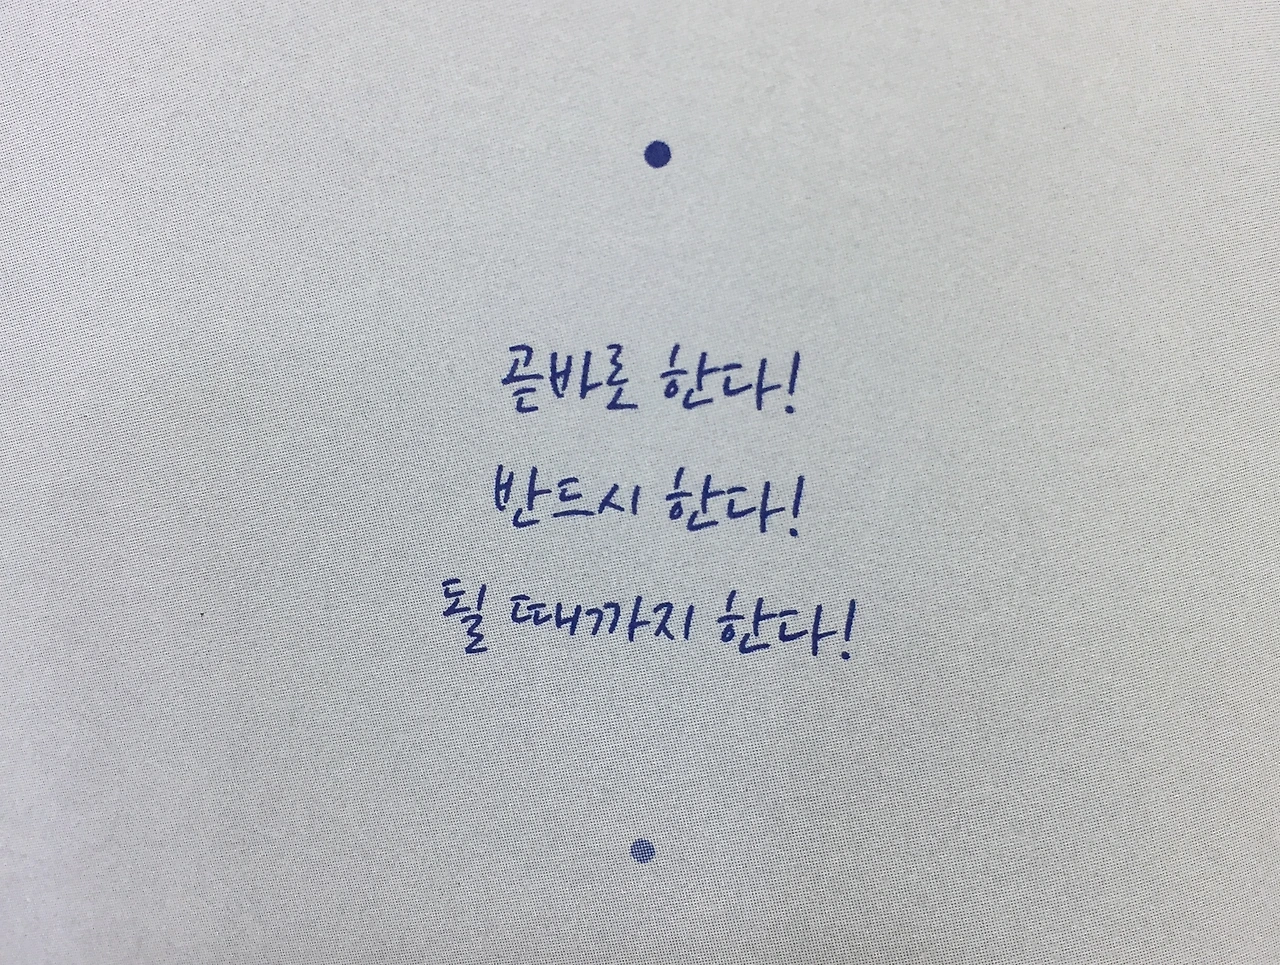 곧바로 한다!
반드시 한다!
될 때까지 한다!